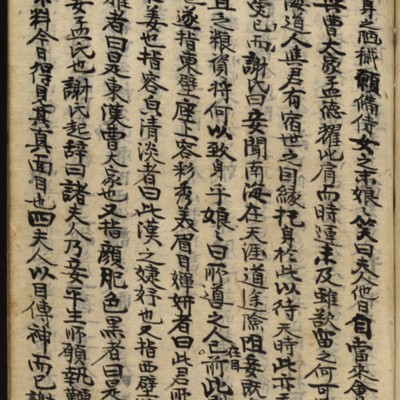 身之陋穢願備侍女之末娘〻笑曰夫人他日自當來會
曹大家孟德耀比肩而時運未及雖欲留之何可
海道人與君有宿世之因緣托身於此以待天時此亦
已而謝氏曰妾聞南海在天涯道途險阻妾既
且乏粮資將何以致身乎娘〻曰所道之人已在目所此
也遂指東壁座上容彩秀美眉目嬋妍者曰此君所
妻也指容皃清淡者曰此漢之婕妤也又指西壁
雅者曰是東漢曹大家也又指顔肥色黑者曰是
妾孟氏也謝氏起辭曰諸夫人乃妾平生所願執鞭
不料今日得見其真面目也四夫人以目傳神而已謝